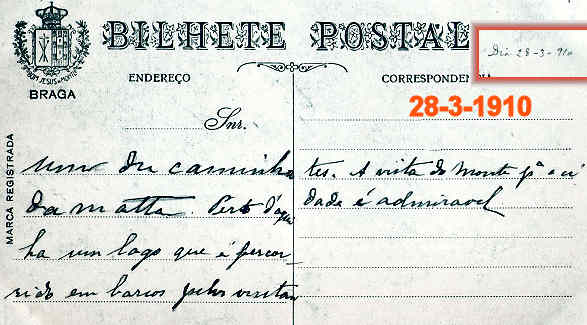 BILHETE POSTAL
Dia 28-3-910
BOM JESUS DO MONTE
BRAGA
ENDEREÇO
CORRESPONDENCIA
28-3-1910
Snr.
MARCA REGISTRADA
um dos caminhos
da matta. Perto d'aqui
ha um lago que é percor-
rido em barcos pelos visitan
tes. A vista do monte pª a ci
dade é admiravel